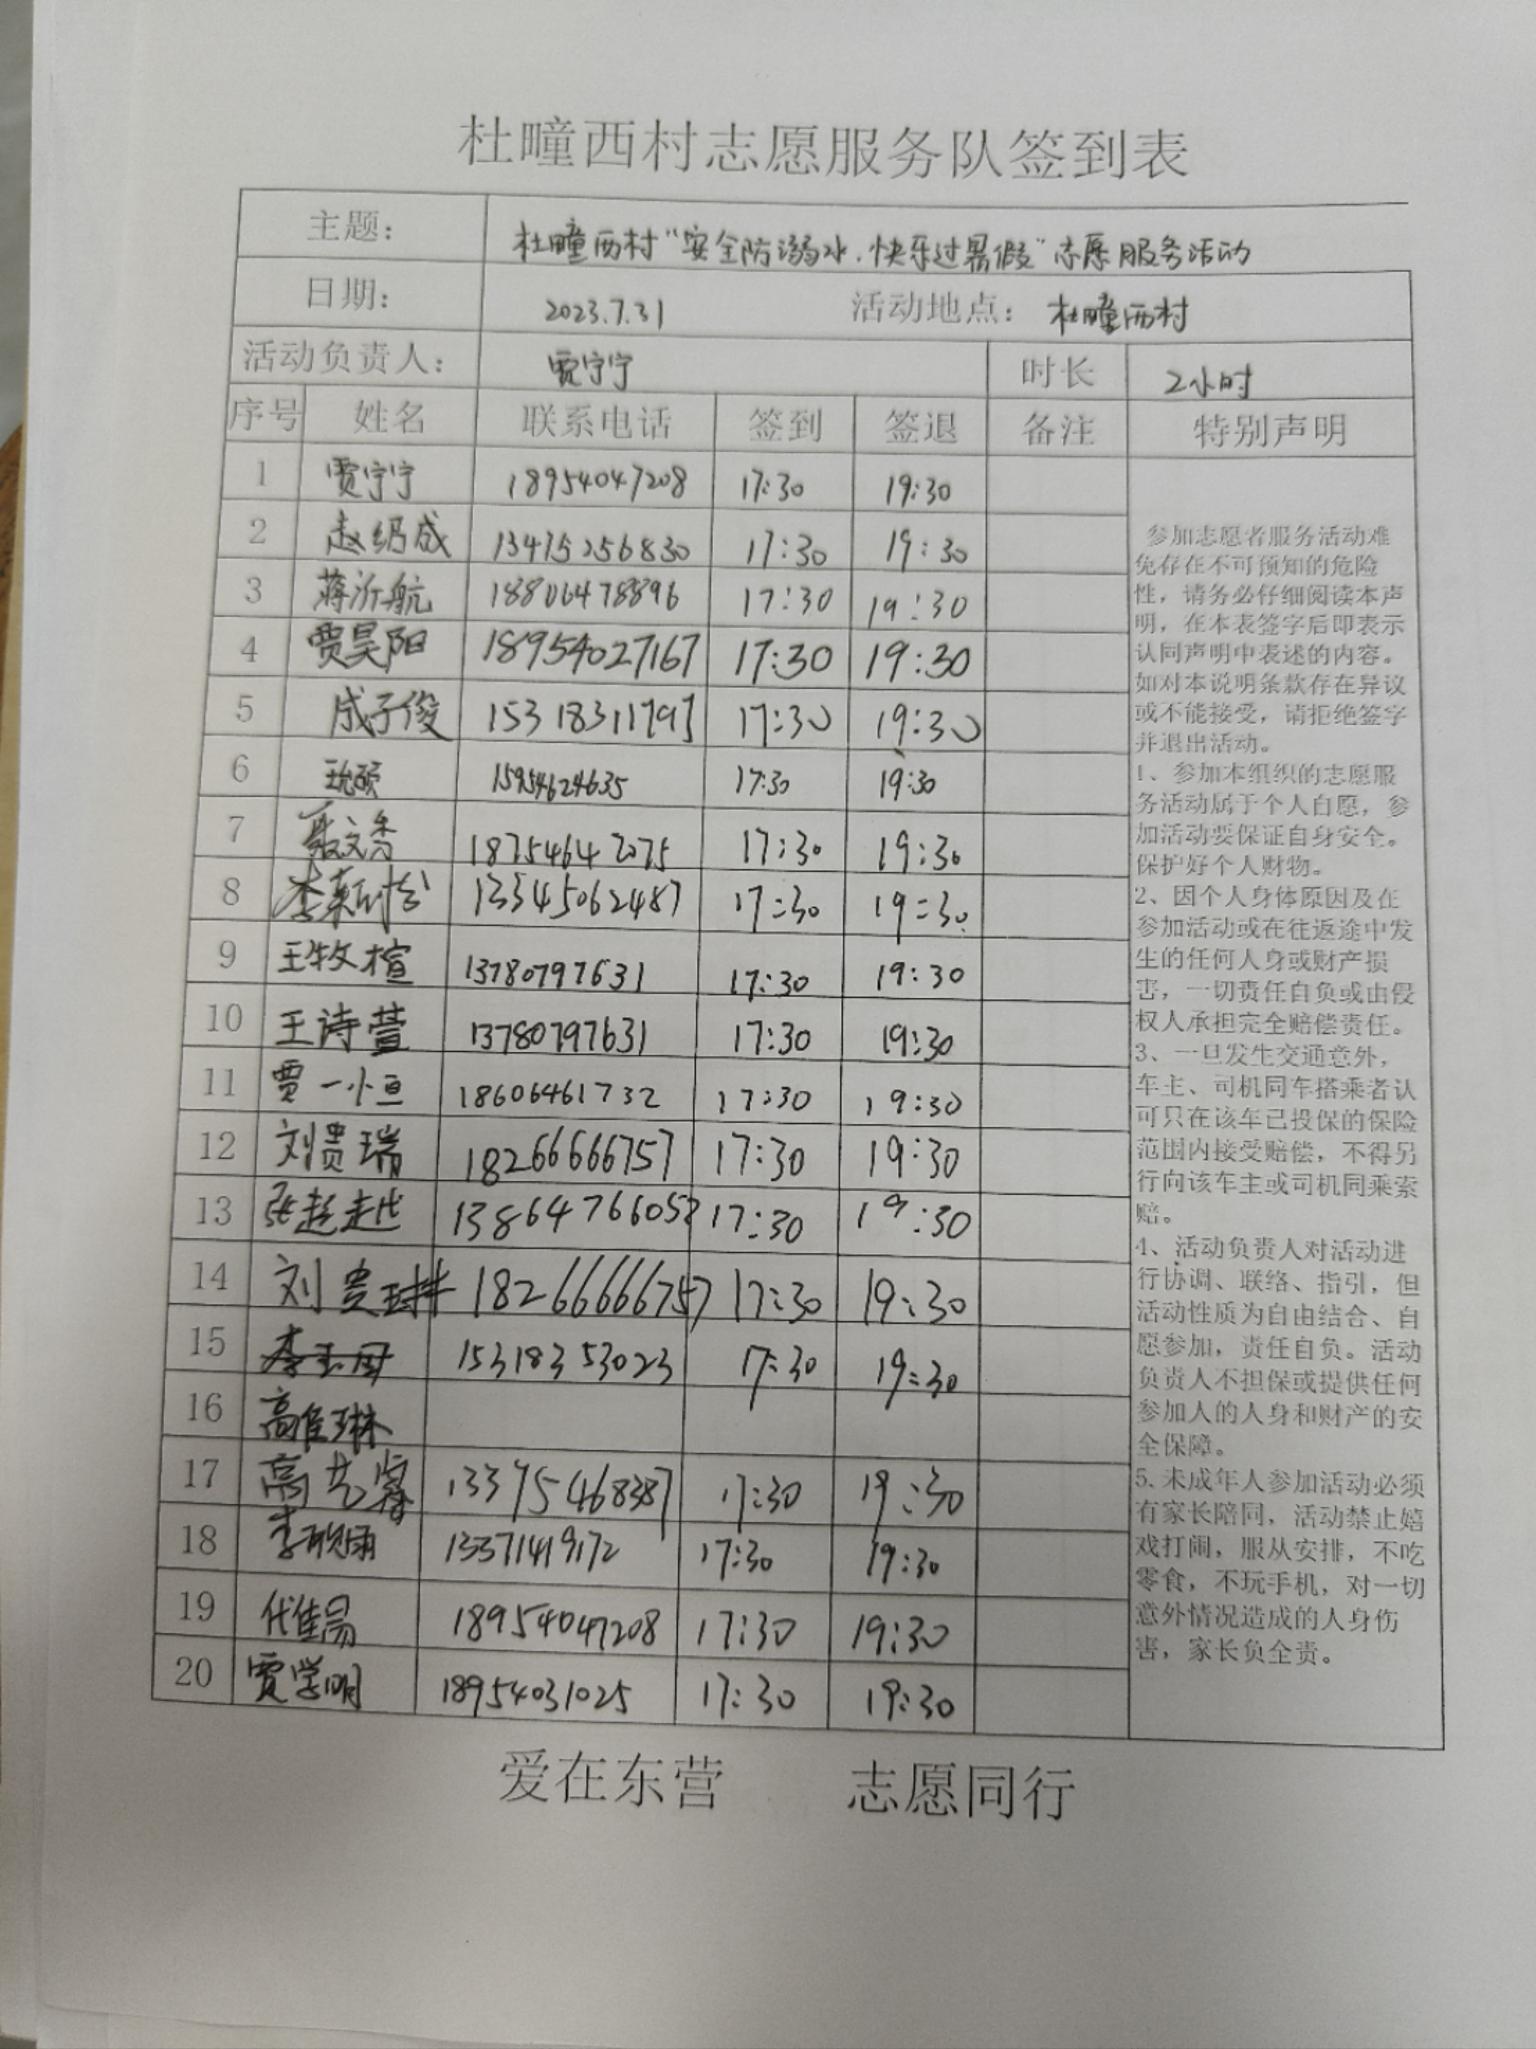 杜疃西村志愿服务队签到表
主题： 杜疃西村“安全防溺水，快乐过暑假”志愿服务活动
日期： 2023.7.31 活动地点： 杜疃西村
活动负责人： 贾宁宁 时长 2小时
序号 姓名 联系电话 签到 签退 备注 特别声明
1 贾宁宁 18954047208 17:30 19:30
2 赵绍成 13475256830 17:30 19:30
3 蒋沂航 18806478896 17:30 19:30
4 贾昊阳 18954027167 17:30 19:30
5 成子俊 15318311797 17:30 19:30
6 15954624635 17:30 19:30
7 18754642075 17:30 19:30
8 13345062487 17:30 19:30
9 王牧楦 13780797631 17:30 19:30
10 王诗萱 13780797631 17:30 19:30
11 贾一恒 18606461732 17:30 19:30
12 刘贵瑞 18266666757 17:30 19:30
13 张超越 13864766052 17:30 19:30
14 刘贵 18266666757 17:30 19:30
15 15318353023 17:30 19:30
16 高佳琳
17 高艺睿 13375468387 17:30 19:30
18 13371419172 17:30 19:30
19 代佳易 18954047208 17:30 19:30
20 贾学明 18954031025 17:30 19:30
参加志愿者服务活动难
免存在不可预知的危险
性，请务必仔细阅读本声
明，在本表签字后即表示
认同声明中表述的内容。
如对本说明条款存在异议
或不能接受，请拒绝签字
并退出活动。
1、参加本组织的志愿服
务活动属于个人自愿，参
加活动要保证自身安全。
保护好个人财物。
2、因个人身体原因及在
参加活动或在往返途中发
生的任何人身或财产损
害，一切责任自负或由侵
权人承担完全赔偿责任。
3、一旦发生交通意外，
车主、司机同车搭乘者认
可只在该车已投保的保险
范围内接受赔偿，不得另
行向该车主或司机同乘索
赔。
4、活动负责人对活动进
行协调、联络、指引，但
活动性质为自由结合、自
愿参加，责任自负。活动
负责人不担保或提供任何
参加人的人身和财产的安
全保障。
5.未成年人参加活动必须
有家长陪同，活动禁止嬉
戏打闹，服从安排，不吃
零食，不玩手机，对一切
意外情况造成的人身伤
害，家长负全责。
爱在东营 志愿同行